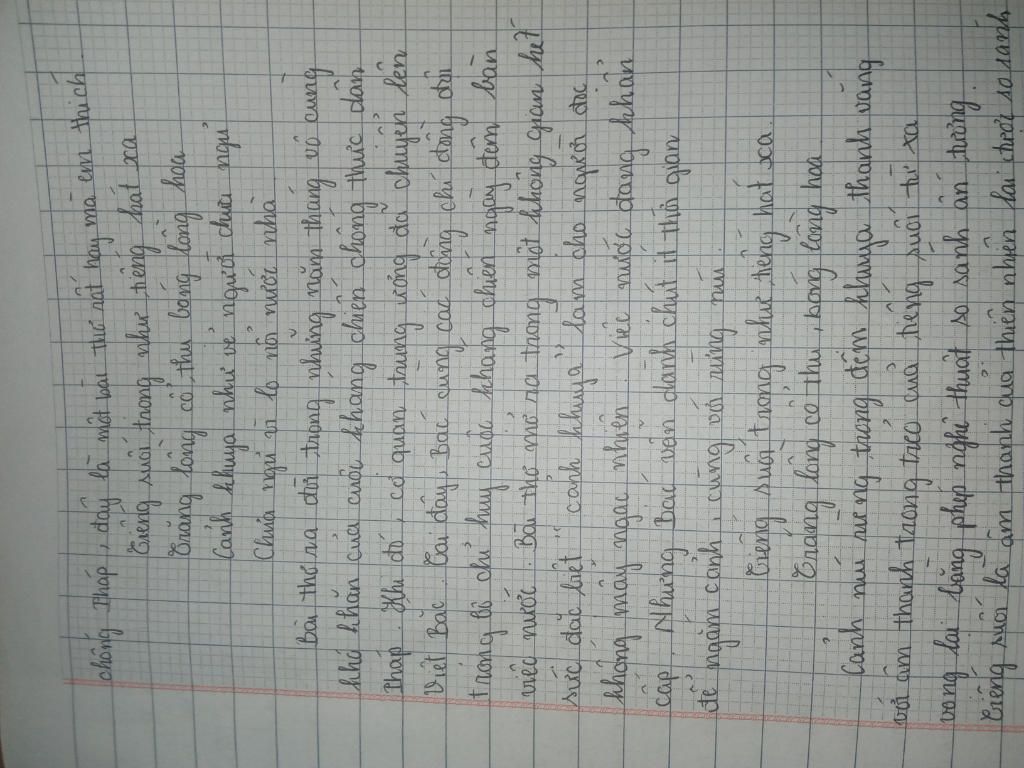 chống Pháp, đây là một bài thơ rất hay mà em thích
Tiếng suối trong như tiếng hát xa
Trăng lồng cổ thụ bóng lồng hoa
Cảnh khuya như vẽ người chưa ngủ
Chưa ngủ vì lo nỗi nước nhà
Bài thơ ra đời trong những năm tháng vô cùng
khó khăn của cuộc kháng chiến chống thực dân
Pháp. Khi đó, cơ quan trung ương đã chuyển lên
Việt Bắc. Tại đây, Bác cùng các đồng chí đồng đội
trong bộ chỉ huy cuộc kháng chiến ngày đêm bàn
việc nước. Bài thơ mở ra trong một không gian hết
sức đặc biệt " cảnh khuya" làm cho người đọc
không mấy ngạc nhiên. Việc nước đang khẩn
cấp. Nhưng Bác vẫn dành chút ít thời gian
để ngắm cảnh, cùng với rừng núi.
Tiếng suối trong như tiếng hát xa.
Trăng lồng cổ thụ, bóng lồng hoa
Cảnh núi rừng trong đêm khuya thanh vắng
với âm thanh trong trẻo của tiếng suối từ xa
vọng lại bằng phép nghệ thuật so sánh ấn tượng.
Tiếng suối là âm thanh của thiên nhiên lại được so sánh